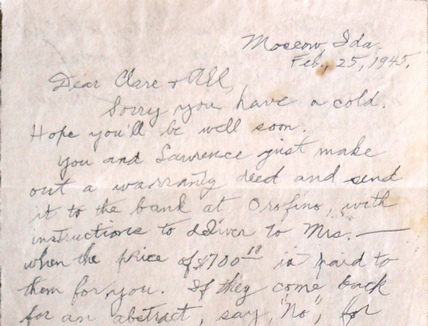 Moscow, Ida.
Feb, 25, 1945.
Dear Clare & All,
Sorry you have a cold.
Hope you'll be well soon.
You and Lawrence just make
out a warranty deed and send
it to the bank at Orofino, with
instructions to deliver to Mrs. —
when the price of $700 is paid to
them for you. If they come back
for an abstract, say, "No", for